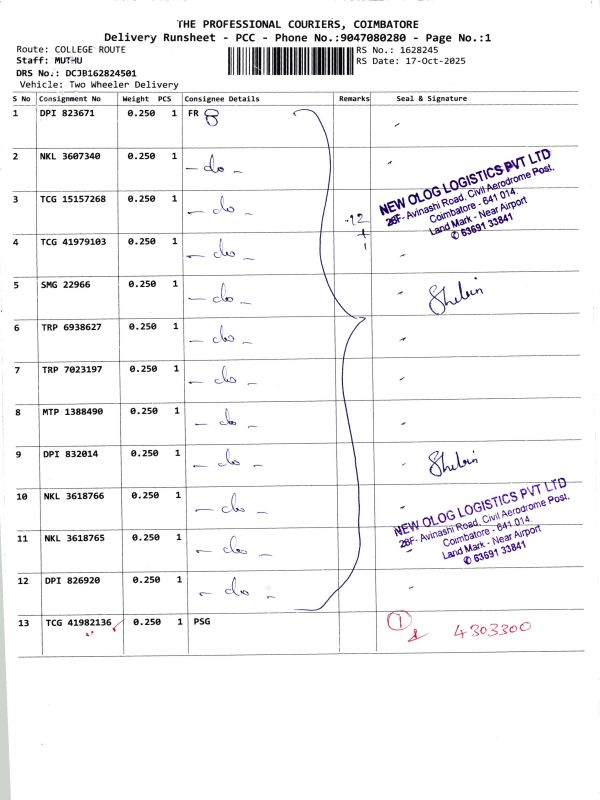 THE PROFESSIONAL COURIERS, COIMBATORE
Delivery Runsheet - PCC - Phone No.:9047080280 - Page No.:1
Route: COLLEGE ROUTE
Staff: MUTHU
DRS No.: DCJB162824501
Vehicle: Two Wheeler Delivery
RS No.: 1628245
RS Date: 17-Oct-2025
S No Consignment No Weight PCS Consignee Details Remarks Seal & Signature
1 DPI 823671 0.250 1 FR 8
2 NKL 3607340 0.250 1 - do -
3 TCG 15157268 0.250 1 - do -
12
+
1
NEW OLOG LOGISTICS PVT LTD
28F- Avinashi Road, Civil Aerodrome Post,
Coimbatore - 641 014.
Land Mark - Near Airport
✆ 63691 33841
4 TCG 41979103 0.250 1 - do -
5 SMG 22966 0.250 1 - do - Shebin
6 TRP 6938627 0.250 1 - do -
7 TRP 7023197 0.250 1 - do -
8 MTP 1388490 0.250 1 - do -
9 DPI 832014 0.250 1 - do - Shebin
10 NKL 3618766 0.250 1 - do -
NEW OLOG LOGISTICS PVT LTD
28F- Avinashi Road, Civil Aerodrome Post,
Coimbatore - 641 014.
Land Mark - Near Airport
✆ 63691 33841
11 NKL 3618765 0.250 1 - do -
12 DPI 826920 0.250 1 - do -
13 TCG 41982136 0.250 1 PSG 1 & 4303300